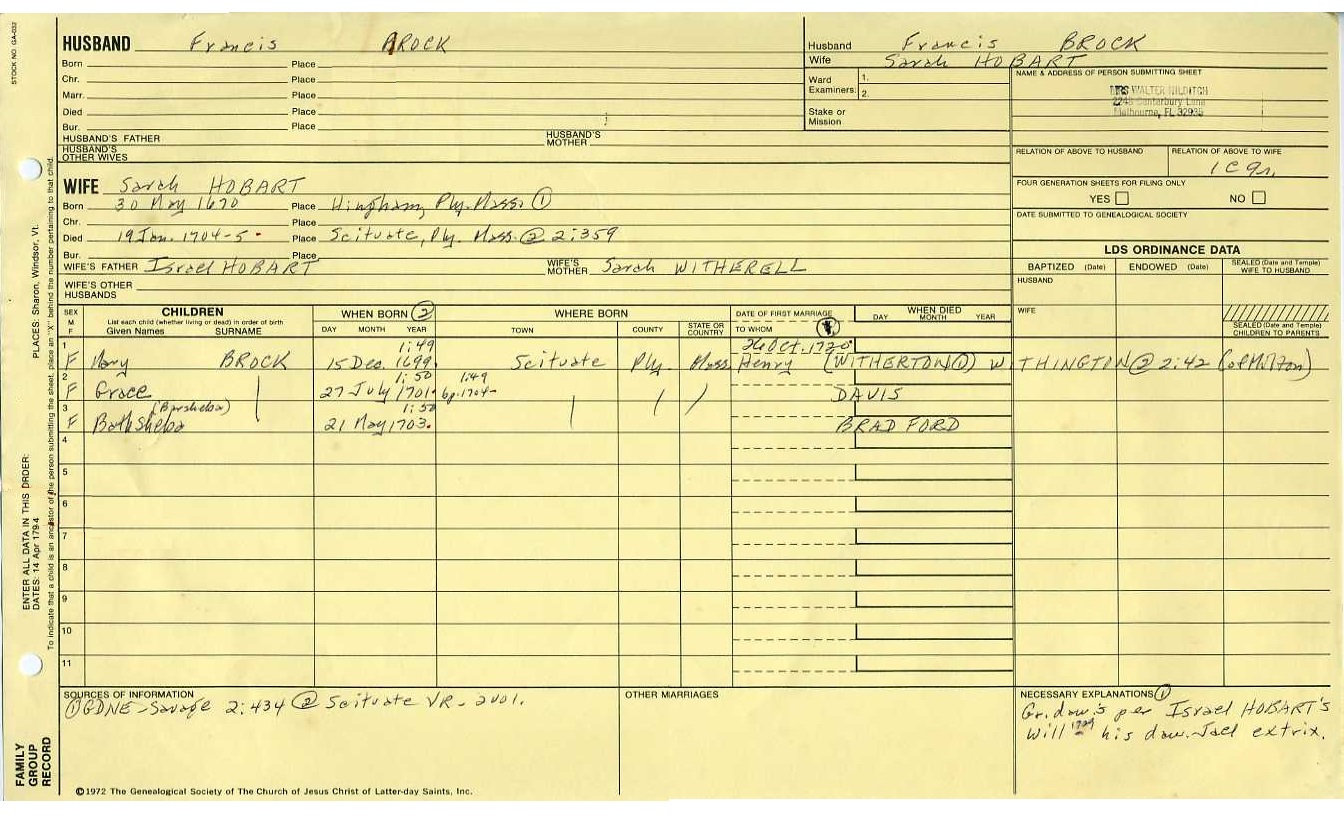 STOCK NO. GA-032
HUSBAND Francis BROCK
Born Place
Chr. Place
Marr. Place
Died Place
Bur. Place
HUSBAND'S FATHER HUSBAND'S MOTHER
HUSBAND'S OTHER WIVES
Husband Francis BROCK
Wife Sarah HOBART
Ward Examiners: 1.
2.
Stake or Mission
NAME & ADDRESS OF PERSON SUBMITTING SHEET
MRS WALTER HILDITCH
Canterbury Lane
Melbourne, FL 32935
RELATION OF ABOVE TO HUSBAND RELATION OF ABOVE TO WIFE
FOUR GENERATION SHEETS FOR FILING ONLY
YES NO
DATE SUBMITTED TO GENEALOGICAL SOCIETY
LDS ORDINANCE DATA
BAPTIZED (Date) ENDOWED (Date) SEALED (Date and Temple) WIFE TO HUSBAND
HUSBAND
WIFE
SEALED (Date and Temple) CHILDREN TO PARENTS
WIFE Sarah HOBART
Born 30 May 1670 Place Hingham, Ply. Mass. ①
Chr. Place
Died 19 Jan. 1704-5 Place Scituate, Ply. Mass. ② 2:359
Bur. Place
WIFE'S FATHER Israel HOBART WIFE'S MOTHER Sarah WITHERELL
WIFE'S OTHER HUSBANDS
SEX M F CHILDREN WHEN BORN ② WHERE BORN DATE OF FIRST MARRIAGE WHEN DIED
List each child (whether living or dead) in order of birth
Given Names SURNAME DAY MONTH YEAR TOWN COUNTY STATE OR COUNTRY TO WHOM DAY MONTH YEAR
1 1:49 26 Oct. 1720
F Mary BROCK 15 Dec. 1699. Scituate Ply. Mass. Henry (WITHERTON ①) WITHINGTON ② 2:42 (of Milton)
2 1:50 1:49
F Grace 27 July 1701. bp. 1704- DAVIS
3 (Barsheba) 1:50
F Bathsheba 21 May 1703. BRADFORD
4
5
6
7
8
9
10
11
SOURCES OF INFORMATION
① GDNE - Savage 2:434 ② Scituate VR - 2vol.
OTHER MARRIAGES
NECESSARY EXPLANATIONS ①
Gr. dau's per Israel HOBART'S
Will his dau. Jael extrix.
©1972 The Genealogical Society of The Church of Jesus Christ of Latter-day Saints, Inc.
FAMILY GROUP RECORD
ENTER ALL DATA IN THIS ORDER:
DATES: 14 Apr 1794
PLACES: Sharon, Windsor, Vt.
To indicate that a child is an ancestor of the person submitting the sheet, place an "X" behind the number pertaining to that child.